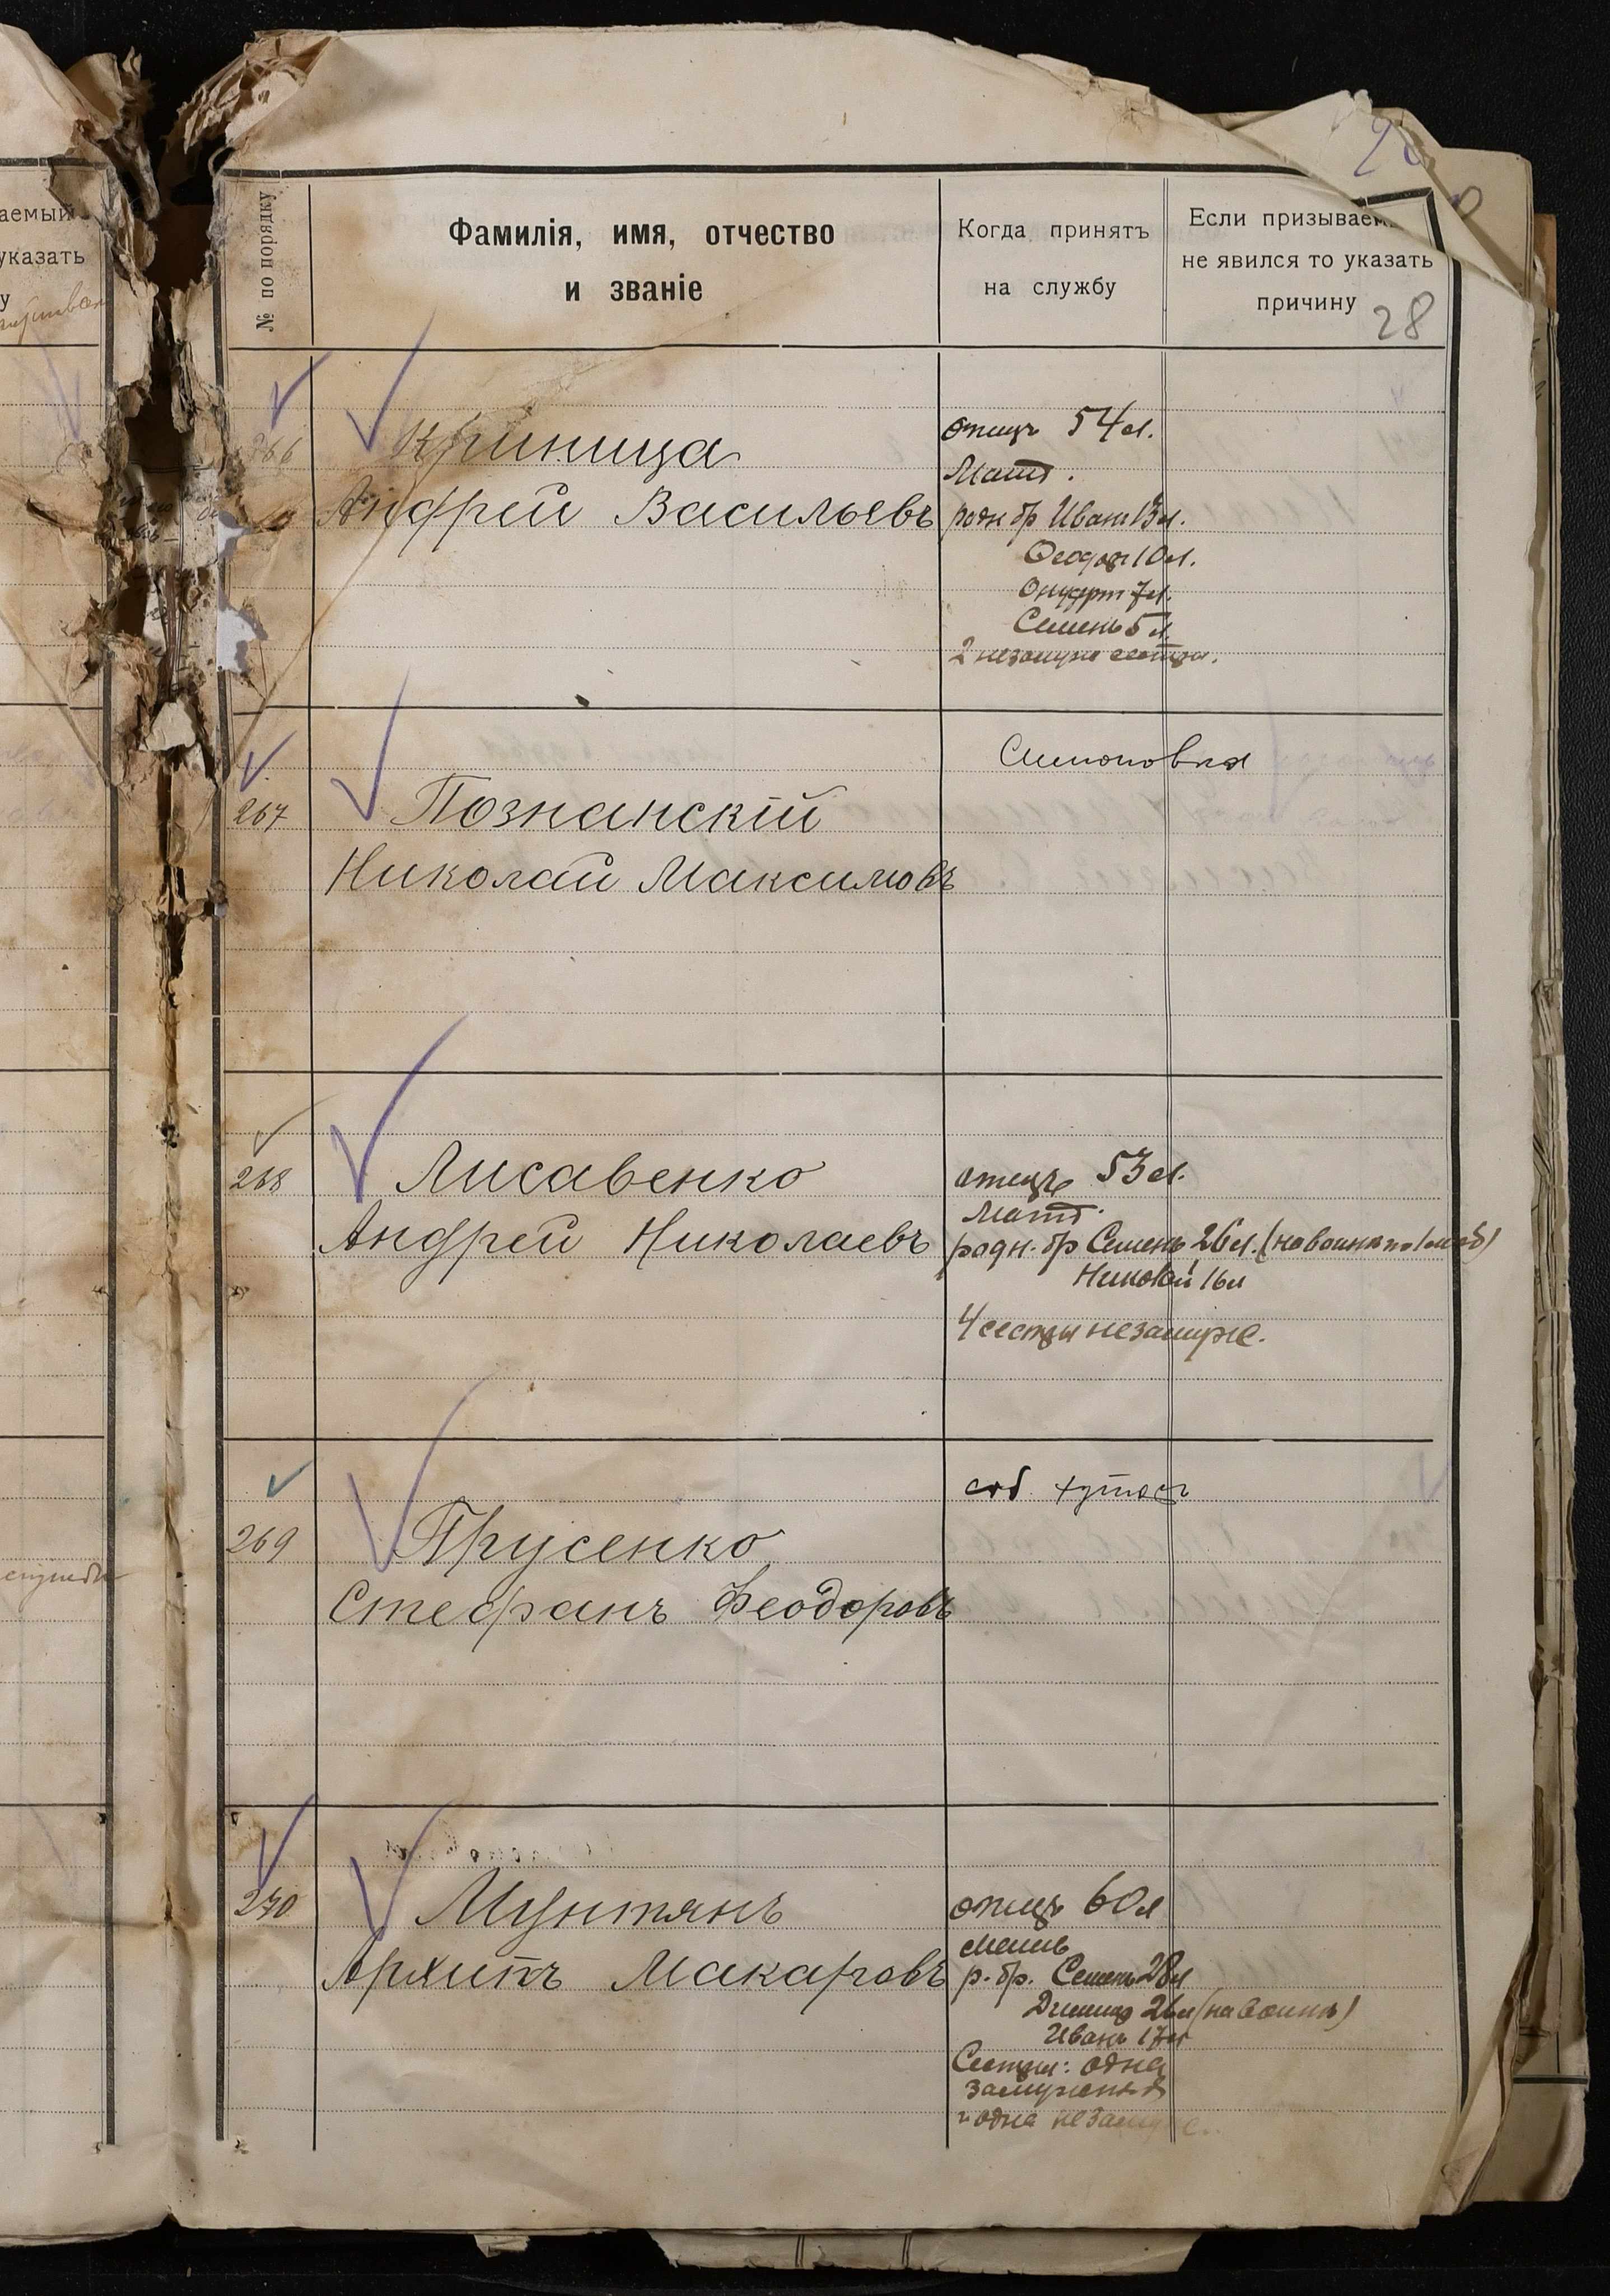 аемый
указать
у
№ по порядку
Фамилія, имя, отчество
и званіе
Когда принятъ
на службу
Если призываем
не явился то указать
причину
28
266
Криница
Андрей Васильевъ
отецъ 54 л.
Мать.
родн бр Иванъ 13 л.
Феодор 10 л.
Онуфрт 7 л.
Семенъ 5 л.
2 незамуж сестры.
267
Познанскій
Николай Максимовъ
Симоновка
268
Лисавенко
Андрей Николаевъ
отецъ 53 л.
Мать.
родн. бр Семенъ 26 л. (на войнѣ по моб)
Николай 16 л
4 сестры незамуже.
269
Прусенко
Стефанъ Феодоровъ
соб хуторъ
270
Мунтянъ
Архипъ Макаровъ
отецъ 60 л
мать
р. бр. Семенъ 28 л
Дмитр 26 л (на войнѣ)
Иванъ 17 л
Сестры: одна
замужемъ
и одна незамуже.